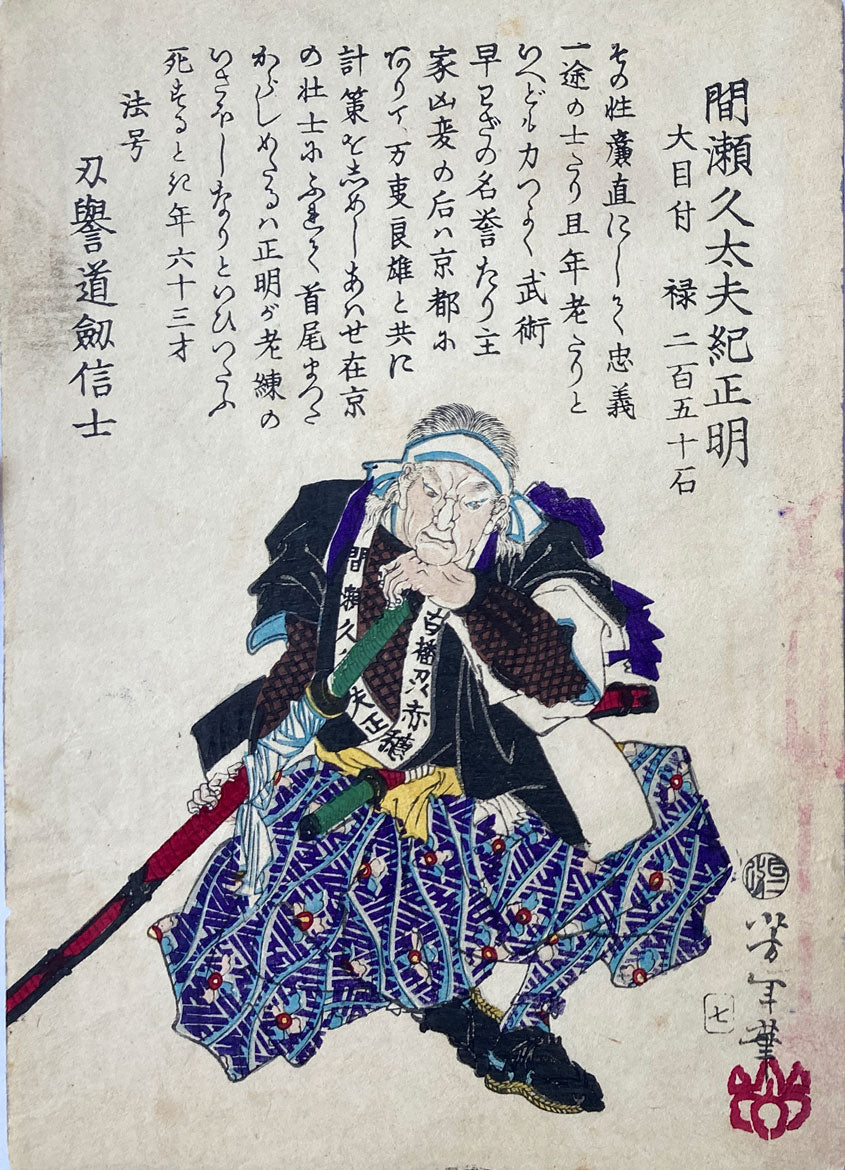 間瀬久太夫紀正明
大目付 禄 二百五十石
その性廉直にして忠義
一途の士たり且年老たりと
いへども力つよく武術
早わざの名誉たり主
家凶変の后ハ京都に
ありて万叓良雄と共に
計策をしめしあハせ在京
の壮士にふれて首尾まつた
からしめたるハ正明が老練の
いさほしなりといひつたふ
死するとき年六十三才
法号
刃譽道劔信士
間瀬久太夫正
播刕赤穗
芳年筆
七